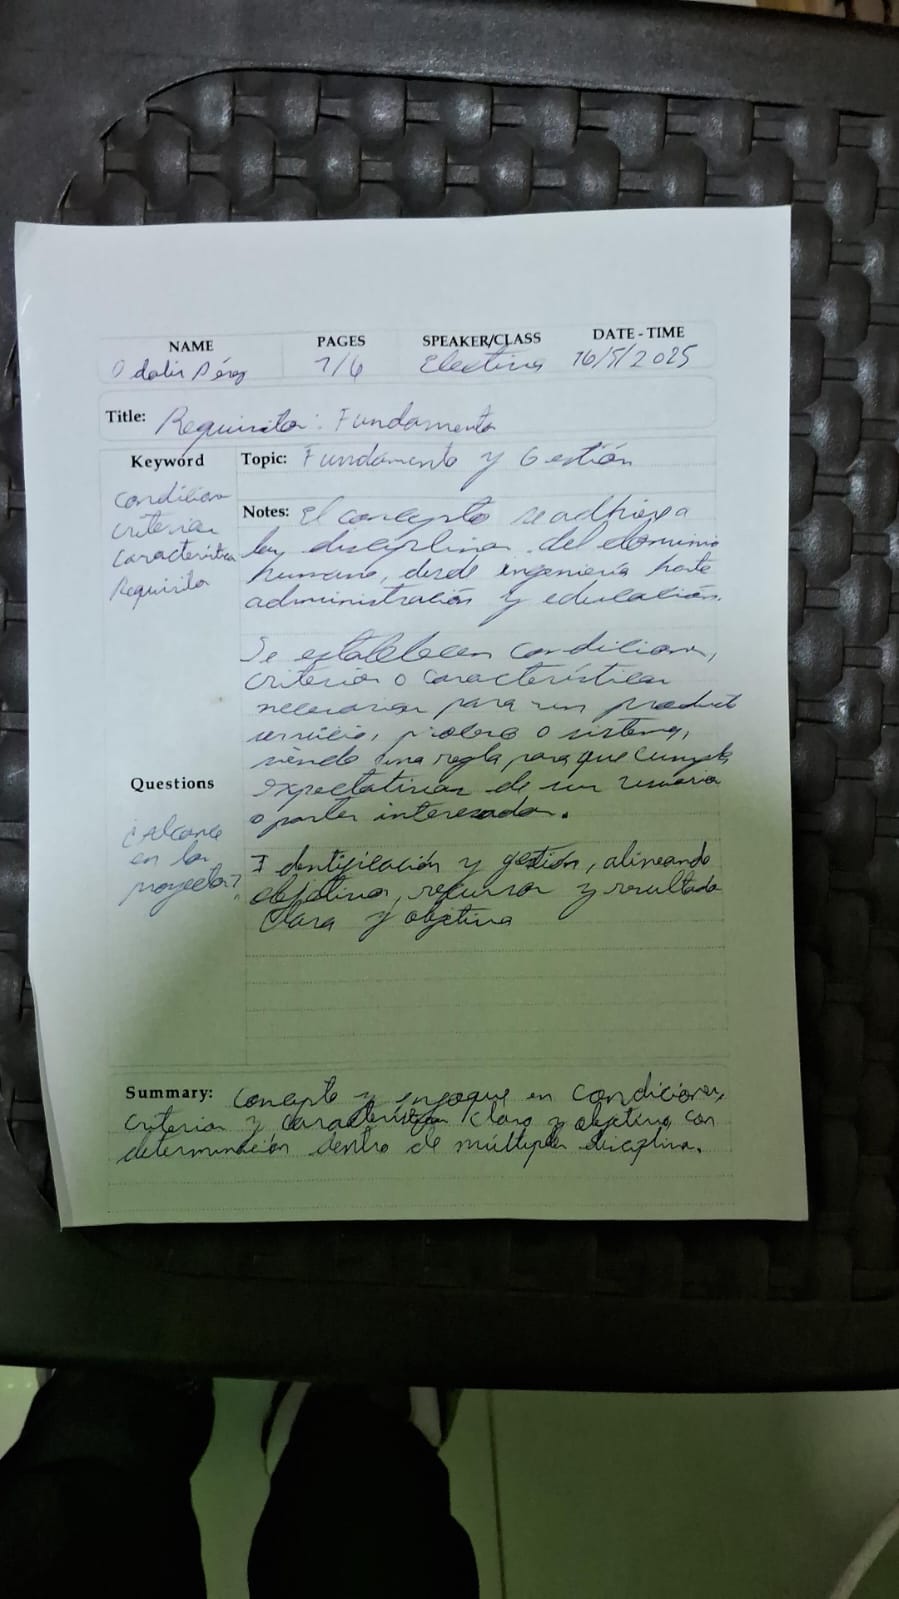 NAME PAGES SPEAKER/CLASS DATE - TIME
Odalis Pérez 1/6 Electiva 16/5/2025
Title: Requisitos: Fundamentos
Keyword
Condiciones
criterios
características
Requisitos
Topic: Fundamentos y Gestión
Notes: El concepto se adhiere a
las disciplinas del dominio
humano, desde ingeniería hasta
administración y educación.
Se establecen condiciones,
criterios o características
necesarias para un producto
servicio, proceso o sistema,
siendo una regla para que cumpla
expectativas de un usuario
o partes interesadas.
Identificación y gestión, alineando
objetivos, recursos y resultados
claros y objetivos
Questions
¿Alcance
en los
proyectos?
Summary: Concepto y enfoque en condiciones,
criterios y características claros y objetivos con
determinación dentro de múltiples disciplinas.